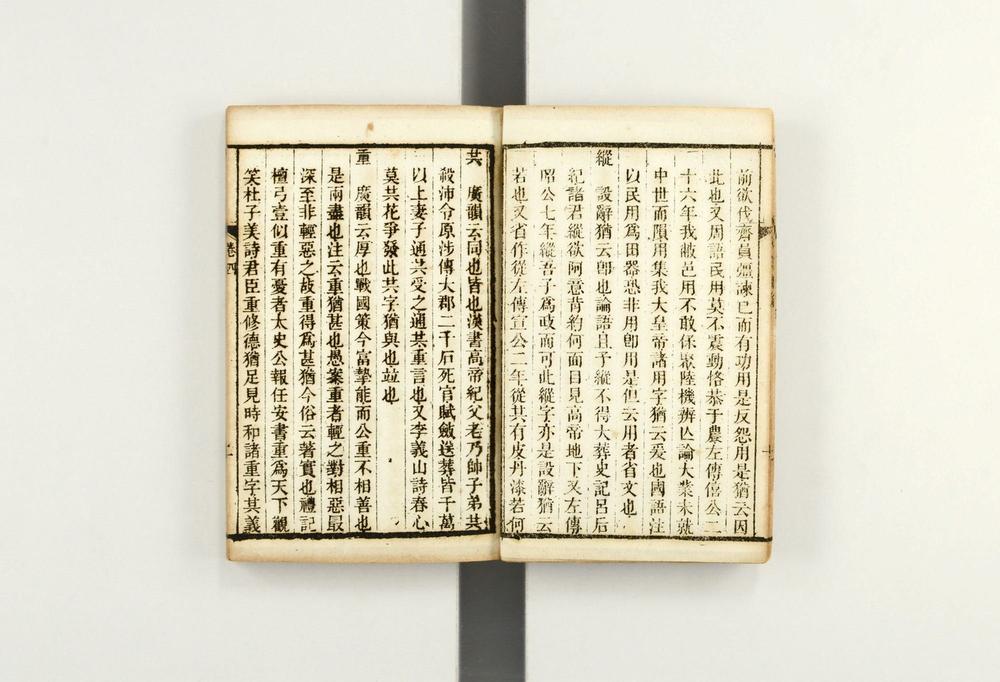 前欲伐齊員彊諫已而有功用是反怨用是猶云因
此也又周語民用莫不震動恪恭于農左傳僖公二
十六年我敝邑用不敢保聚陸機辨亾論大業未就
中世而隕用集我大皇帝諸用字猶云爰也國語注
以民用爲田器恐非用卽用是但云用者省文也
縱　設辭猶云卽也論語且予縱不得大葬史記呂后
紀諸君縱欲阿意背約何面目見高帝地下又左傳
昭公七年縱吾子爲政而可此縱字亦是設辭猶云
若也又省作從左傳宣公二年從其有皮丹漆若何
共　廣韻云同也皆也漢書高帝紀父老乃帥子弟共
殺沛令原涉傳大郡二千石死官賦斂送葬皆千萬
以上妻子通共受之通共重言也又李義山詩春心
莫共花爭發此共字猶與也竝也
重　廣韻云厚也戰國策今富摯能而公重不相善也
是兩盡也注云重猶甚也愚案重者輕之對相惡最
深至非輕惡之故重得爲甚猶今俗云著實也禮記
檀弓壹似重有憂者太史公報任安書重爲天下觀
笑杜子美詩君臣重修德猶足見時和諸重字其義
卷四